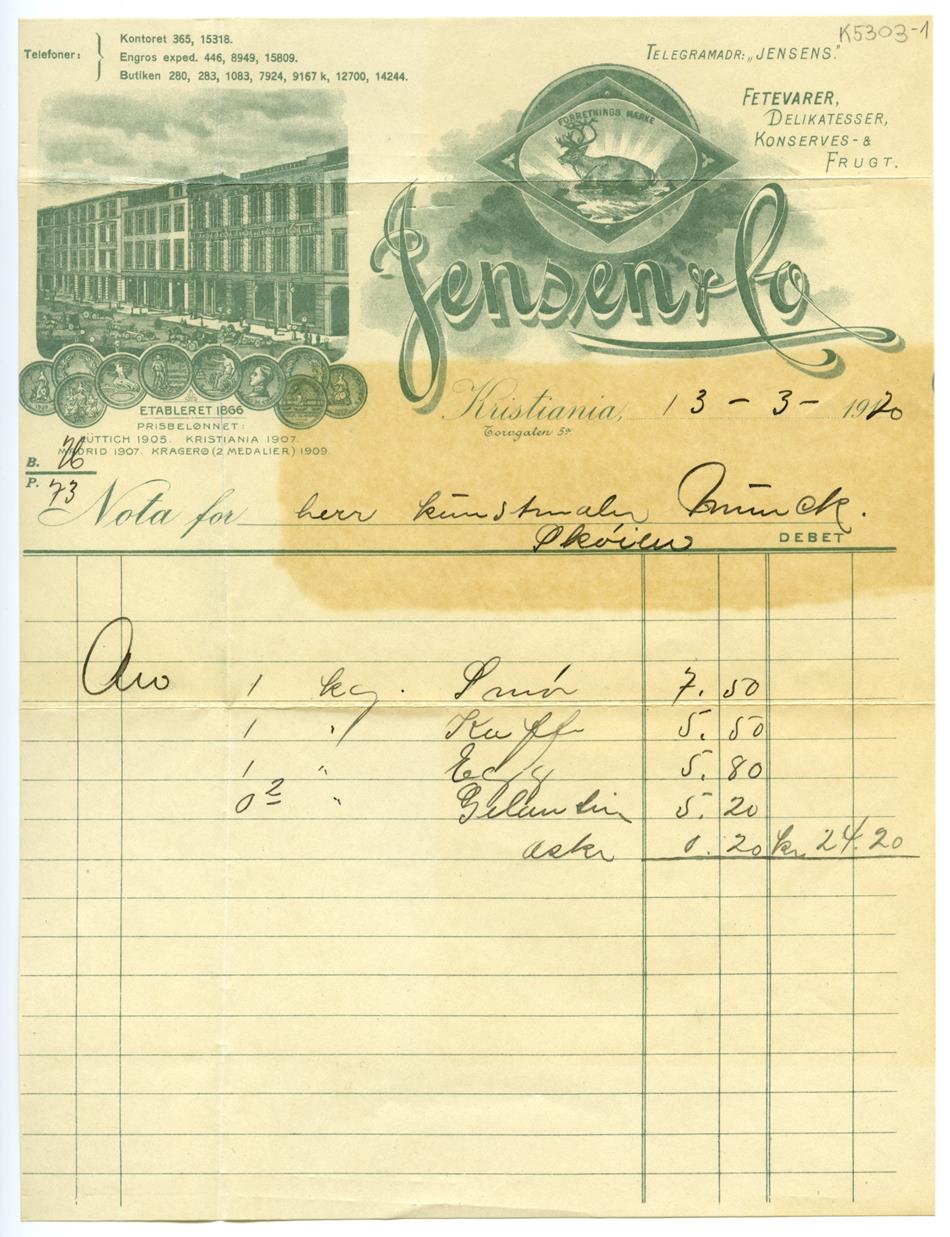 K5303-1
Telefoner:
Kontoret 365, 15318.
Engros exped. 446, 8949, 15809.
Butiken 280, 283, 1083, 7924, 9167 k, 12700, 14244.
TELEGRAMADR: „JENSENS."
FETEVARER,
DELIKATESSER,
KONSERVES- &
FRUGT.
FORRETNINGS MÆRKE
Jensen & Co
ETABLERET 1866
PRISBELØNNET:
LÜTTICH 1905. KRISTIANIA 1907.
MADRID 1907. KRAGERØ (2 MEDALIER) 1909.
Kristiania, 13-3-1920
Torvgaten 5a
B. 76
P. 73
Nota for herr kunstmaler Munck.
Skøien
DEBET
1 kg. Smør 7.50
1 " Kaffe 5.50
1 " Egg 5.80
0 2 " 5.20
0.20 kr 24.20